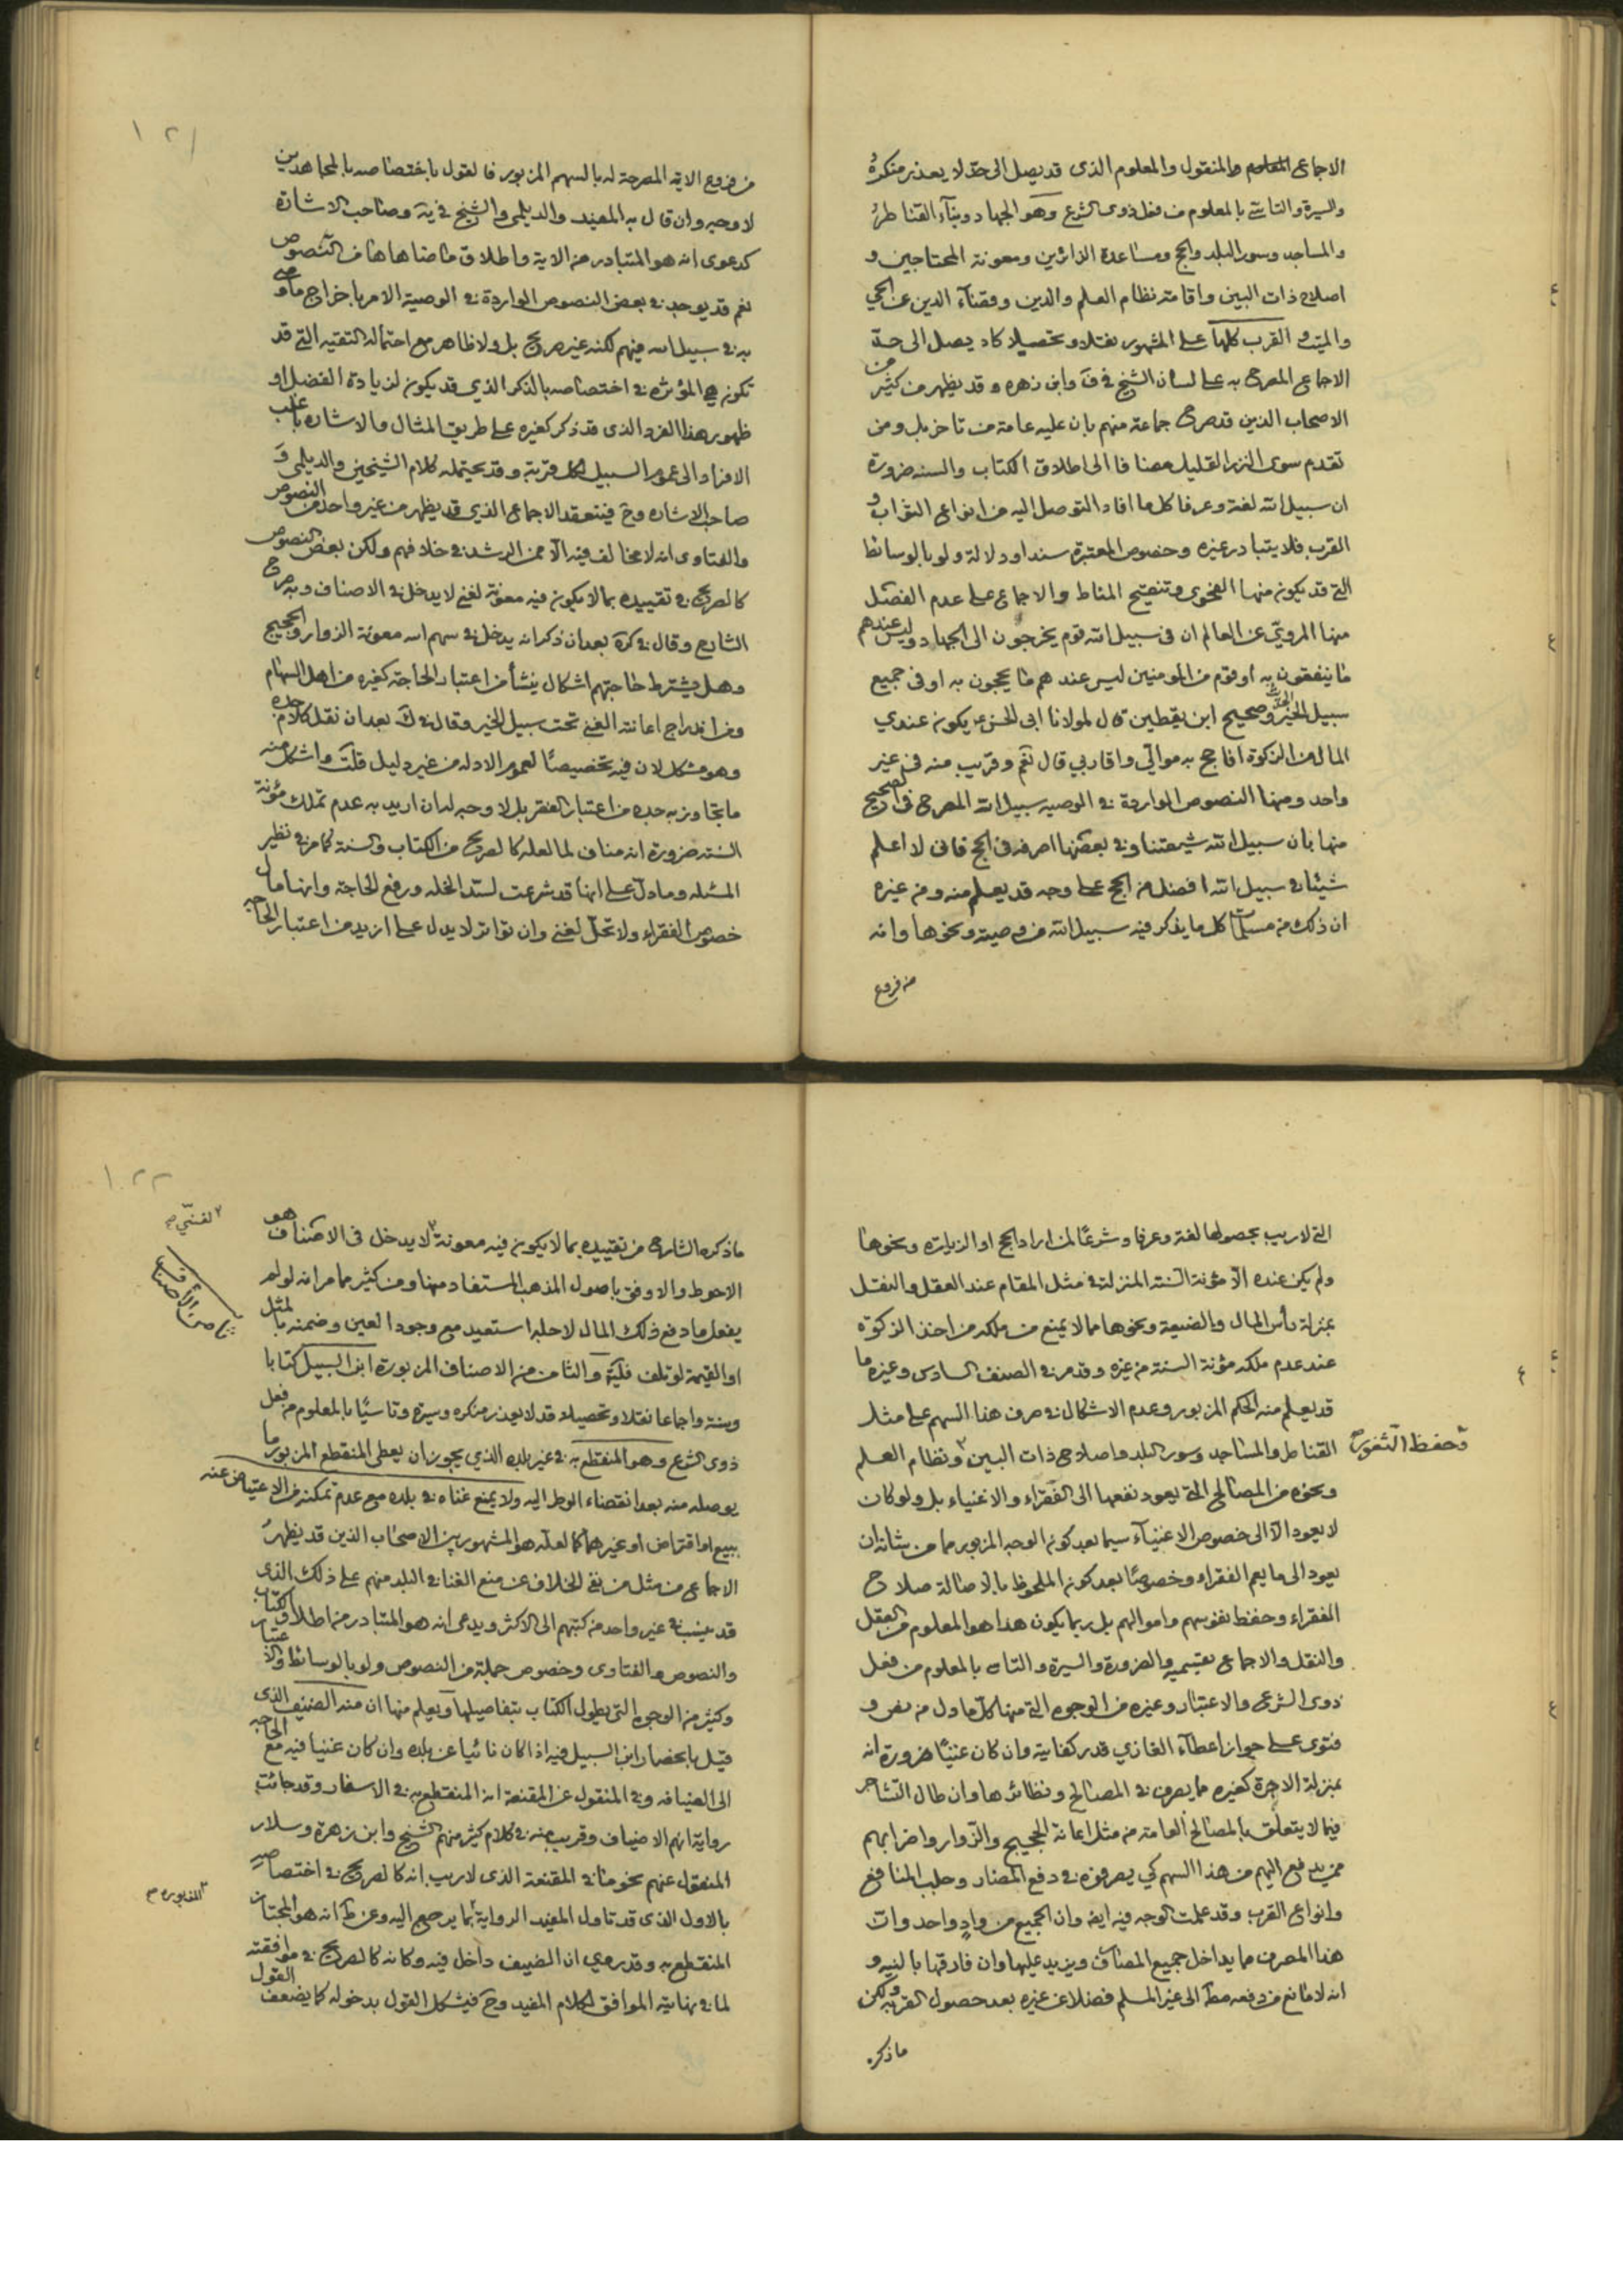 الاجماعى والمنقول والمعلوم الذى قد يصل الى حد لا يعذر منكره
والسيرة والتاسى بالمعلوم من فعل ذوى الشرع وهو الجهاد وبناء القناطر
والمساجد وسور البلد والحج ومساعدة الزائرين ومعونة المحتاجين و
اصلاح ذات البين واقامة نظام العلم والدين وقضاء الدين عن الحى
والميت والقرب كلها على المشهور نقلا وتحصيلا كاد يصل الى حد
الاجماع المصرح به على لسان الشيخ فى ف وابن زهره وقد يظهر من كثير من
الاصحاب الذين قد صرح جماعة منهم بان عليه عامة من تاخر بل ومن
تقدم سوى النزر القليل مضافا الى اطلاق الكتاب والسنه ضرورة
ان سبيل الله لغة وعرفا كل ما افاد التوصل اليه من انواع الثواب و
القرب فلا يتبادر غيره وخصوص المعتبرة سندا ودلالة ولو بالوسائط
التى قد يكون منها الفحوى وتنقيح المناط والاجماع على عدم الفصل
منها المروى عن العالم ان فى سبيل الله قوم يخرجون الى الجهاد وليس عندهم
ما ينفقون به او قوم من المومنين ليس عندهم ما يحجون به او فى جميع
سبيل الخير وصحيح ابن يقطين قال لمولانا ابى الحسن ع يكون عندي
المال من الزكوة افاحج به موالي واقاربي قال نعم وقريب منه فى غير
واحد ومنها النصوص الواردة فى الوصيه سبيل الله المصرح فى الصحيح
منها بان سبيل الله شيعتنا وفى بعضها اصرفه فى الحج فانى لا اعلم
شيئا فى سبيل الله افضل من الحج على وجه قد يعلم منه ومن غيره
ان ذلك من كل ما يذكر فيه سبيل الله من وصية ونحوها وانه
من فروع
١٢١
من فروع الاية المصرحة له بالسهم المزبور فالقول باختصاصه بالمجاهدين
لا وجه وان قال به المفيد والديلمى والشيخ فى ية وصاحب الاشارة
كدعوى انه هو المتبادر من الاية واطلاق ما ضاهاها من النصوص
نعم قد يوجد فى بعض النصوص الواردة فى الوصية الامر باخراج ما اوصى
به فى سبيل الله فيهم لكنه غير صريح بل ولا ظاهر مع احتماله التقيه التى قد
تكون هى المؤثره فى اختصاصه بالذكر الذي قد يكون لزيادة الفضل او
ظهور هذا الفرد الذى قد ذكر كغيره على طريق المثال والاشاره باغلب
الافراد الى عموم السبيل لكل قربة وقد يحتمله كلام الشيخين والديلمى و
صاحب الاشاره وح فينعقد الاجماع الذي قد يظهر من غير واحد من النصوص
والفتاوى انه لا مخالف فيه الا ممن الرشد فى خلافهم ولكن بعض النصوص
كالصريح فى تقييده بما لا يكون فيه معونة لغنى لا يدخل فى الاصناف وبه صرح
الشارح وقال فى كره بعد ان ذكر انه يدخل فى سهم الله معونة الزوار والحجيج
وهل يشترط حاجتهم اشكال ينشأ من اعتبار الحاجة كغيره من اهل السهام
ومن اندراج اعانة الغنى تحت سبيل الخير وقال فى ك بعد ان نقل كلام جده
وهو مشكل لان فيه تخصيصا لعموم الادله من غير دليل قلت واشكل منه
ما تجاوز به جده من اعتبار الفقر بل لا وجه له ان اريد به عدم تملك مؤنة
السنة ضرورة انه مناف لما لعله كالصريح من الكتاب والسنة كما مر فى نظير
المسئله وما دل على انها قد شرعت لسد الخله ورفع الحاجة وانها مال
خصوص الفقراء ولا تحل لغنى وان تواتر لا يدل على ازيد من اعتبار الحاجه
التى لا ريب بحصولها لغة وعرفا وشرعا لمن اراد الحج او الزيارة ونحوها
ولم يكن عنده الا مؤنة السنة المنزلة فى مثل المقام عند العقل والنقل
بمنزلة رأس المال والضيعة ونحوها مما لا يمنع من ملكه من اخذ الزكوة
عند عدم ملكه مؤنة السنة من غيره وقد مر فى الصنف السادس وغيره ما
قد يعلم منه الحكم المزبور وعدم الاشكال فى صرف هذا السهم على مثل
القناطر والمساجد وسور البلد واصلاح ذات البين ونظام العلم
وحفظ الثغور
ونحوه من المصالح التى يعود نفعها الى الفقراء والاغنياء بل ولو كان
لا يعود الا الى خصوص الاغنياء سيما بعد كون الوجه المزبور مما من شانه ان
يعود الى ما يعم الفقراء وخصوصا بعد كون الملحوظ بالاصالة صلاح
الفقراء وحفظ نفوسهم واموالهم بل ربما يكون هذا هو المعلوم من العقل
والنقل والاجماع بقسميه والضرورة والسيرة والتاسى بالمعلوم من فعل
ذوى الشرع والاعتبار وغيره من الوجوه التى منها كل ما دل من نص و
فتوى على جواز اعطاء الغازي قدر كفايته وان كان غنيا ضرورة انه
بمنزلة الاجرة كغيره مما يصرف فى المصالح ونظائرها وان طال التشاجر
فيما لا يتعلق بالمصالح العامة من مثل اعانة الحجيج والزوار واضرابهم
ممن يدفع اليهم من هذا السهم كي يصرفوه فى دفع المضار وجلب المنافع
وانواع القرب وقد علمت الوجه فيه ايضا وان الجميع من واد واحد وان
هذا المصرف مما يداخل جميع المصارف ويزيد عليها وان فارقها بالنيه و
انه لا مانع من دفعه الى غير المسلم فضلا عن غيره بعد حصول القربه ولكن
ما ذكره
١٢٢
ما ذكره الشارح من تقييده بما لا يكون فيه معونة لا يدخل فى الاصناف هو
لغنى
الاحوط والاوفق باصول المذهب المستفاد منها ومن كثير مما مر انه لو لم
يفعل ما دفع ذلك المال لاجله استعيد مع وجود العين وضمنه بالمثل
او القيمة لو تلف والثامن من الاصناف المزبورة ابن السبيل كتابا
ثامن الأصناف
وسنة واجماعا نقلا وتحصيلا قد لا يعذر منكره وسيرة وتاسيا بالمعلوم من فعل
ذوى الشرع وهو المنقطع به فى غير بلده الذي يجوز ان يعطى المنقطع المزبور ما
يوصله منه بعد انقضاء الوطر اليه ولا يمنع غناه فى بلده مع عدم تمكنه من الاعتياض عنه
ببيع او اقتراض او غيرهما كما لعله هو المشهور بين الاصحاب الذين قد يظهر
الاجماعى من مثل من نفى الخلاف عن منع الغنا فى البلد منهم على ذلك الذى
قد ينسب فى غير واحد من كتبهم الى الاكثر ويدعى انه هو المتبادر من اطلاق الكتاب
والنصوص والفتاوى وخصوص جملة من النصوص ولو بالوسائط والاعتبار
وكثير من الوجوه التى يطول الكتاب بتفاصيلها ويعلم منها ان منه الضيف الذى
قيل بانحصار ابن السبيل فيه اذا كان نائيا عن بلده وان كان غنيا فيه مع الحاجه
الى الضيافه وفى المنقول عن المقنعة انه المنقطع به فى الاسفار وقد جائت
رواية انهم الاضياف وقريب منه فى كلام كثير منهم الشيخ وابن زهرة وسلار
المنقول عنهم نحو ما فى المقنعة الذى لا ريب انه كالصريح فى اختصاصه
بالاول الذى قد تاول المفيد الرواية بما يرجع اليه وعن ط انه هو المجتاز
المزبوره
المنقطع به وقد روي ان الضيف داخل فيه وكانه كالصريح فى موافقته
لما فى نهايته الموافق لكلام المفيد وح فيشكل القول بدخوله كما يضعف القول